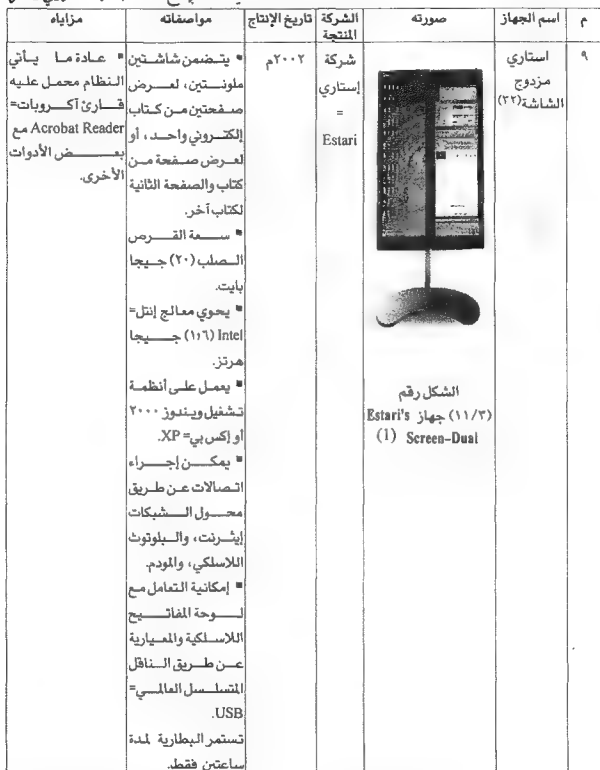 م
اسم الجهاز
صورته
الشركة
المنتجة
تاريخ الإنتاج
مواصفاته
مزاياه
٩
استاري
مزدوج
الشاشة(٣٢)
الشكل رقم
(١١/٣) جهاز Estari's
(1) Screen-Dual
شركة
إستاري
=
Estari
٢٠٠٢م
▪ يتضمن شاشتين
ملونتين، لعرض
صفحتين من كتاب
إلكتروني واحد، أو
لعرض صفحة من
كتاب والصفحة الثانية
لكتاب آخر.
▪ سعة القرص
الصلب (٢٠) جيجا
بايت.
▪ يحوي معالج إنتل=
Intel (١٫٦) جيجا
هرتز.
▪ يعمل على أنظمة
تشغيل ويندوز ٢٠٠٠
أو إكس بي= XP.
▪ يمكن إجراء
اتصالات عن طريق
محول الشبكات
إيثرنت، والبلوتوث
اللاسلكي، والمودم.
▪ إمكانية التعامل مع
لوحة المفاتيح
اللاسلكية والمعيارية
عن طريق الناقل
المتسلسل العالمي=
USB.
تستمر البطارية لمدة
ساعتين فقط.
▪ عادة ما يأتي
النظام محمل عليه
قارئ آكروبات=
Acrobat Reader مع
بعض الأدوات
الأخرى.